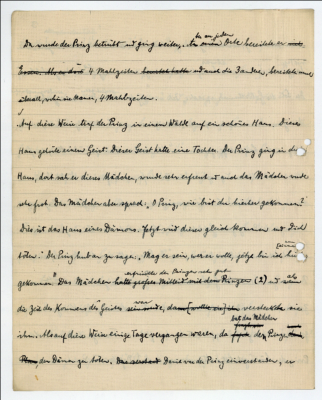 Da wurde der Prinz betrübt und ging weiter. An jedem Orte bereitete er
4 Mahlzeiten und auf die Fandern, bereitete und
überall, wohin er kam, 4 Mahlzeiten.
Auf diese Weise traf der Prinz in einem Walde auf ein schönes Haus. Dieses
Haus gehörte einem Geist. Dieser Geist hatte eine Tochter. Der Prinz ging in das
Haus, dort sah er dieses Mädchen, wurde sehr erfreut und das Mädchen wurde
sehr froh. Das Mädchen aber sprach: O Prinz, wie bist du hierher gekommen?
Dies ist das Haus eines Dämons. Jetzt wird dieser gleich kommen und Dich
töten." Der Prinz hub an zu sagen: "Mag er sein, was er wolle, jetzt bin ich hier
gekommen." Das Mädchen hatte großes Mitleid mit dem Prinzen (2) und als
die Zeit des Kommens des Geistes war, versteckte sie
ihn. Als auf diese Weise einige Tage vergangen waren, da bat das Mädchen den Prinzen
den Dämon zu töten. Damit war der Prinz einverstanden, er